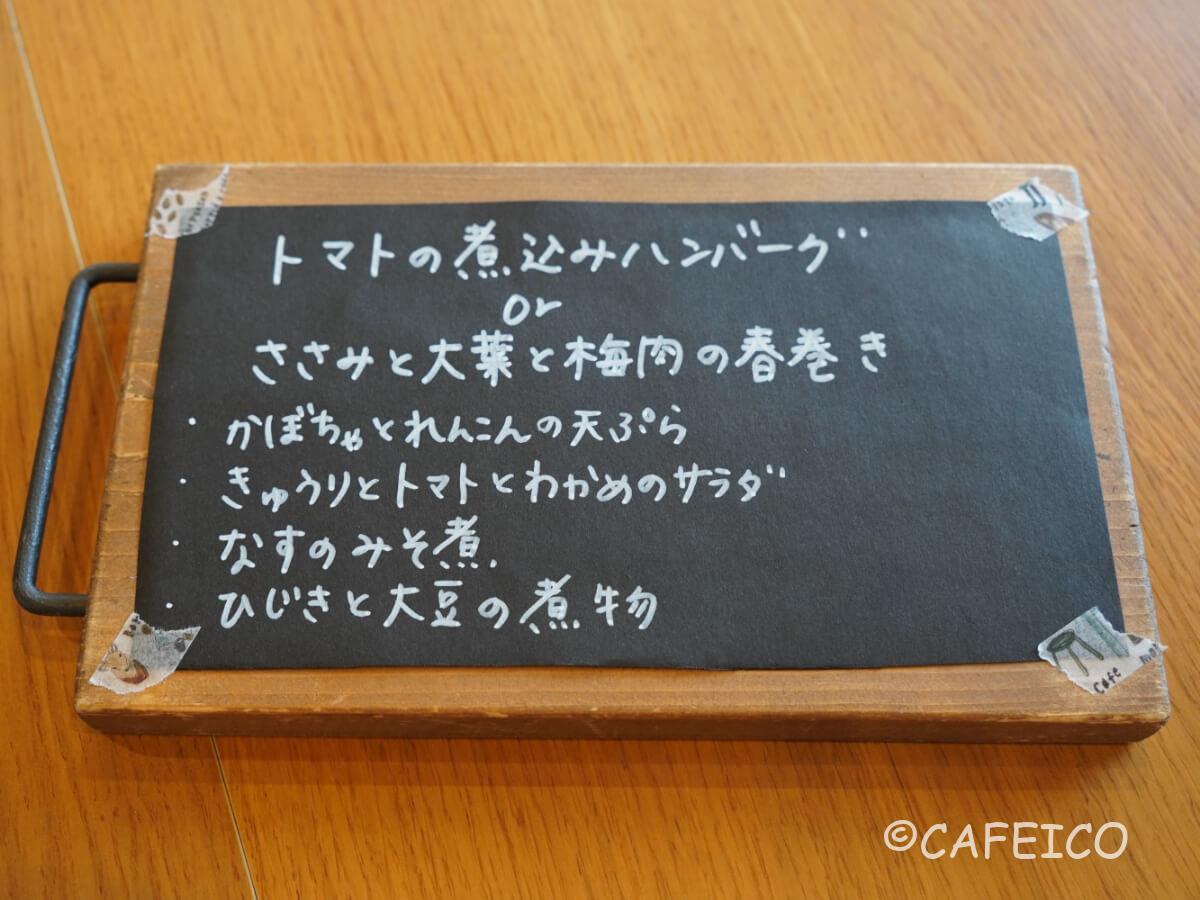 トマトの煮込みハンバーグ
or
ささみと大葉と梅肉の春巻き
・かぼちゃとれんこんの天ぷら
・きゅうりとトマトとわかめのサラダ
・なすのみそ煮.
・ひじきと大豆の煮物
Cafe
©CAFEICO